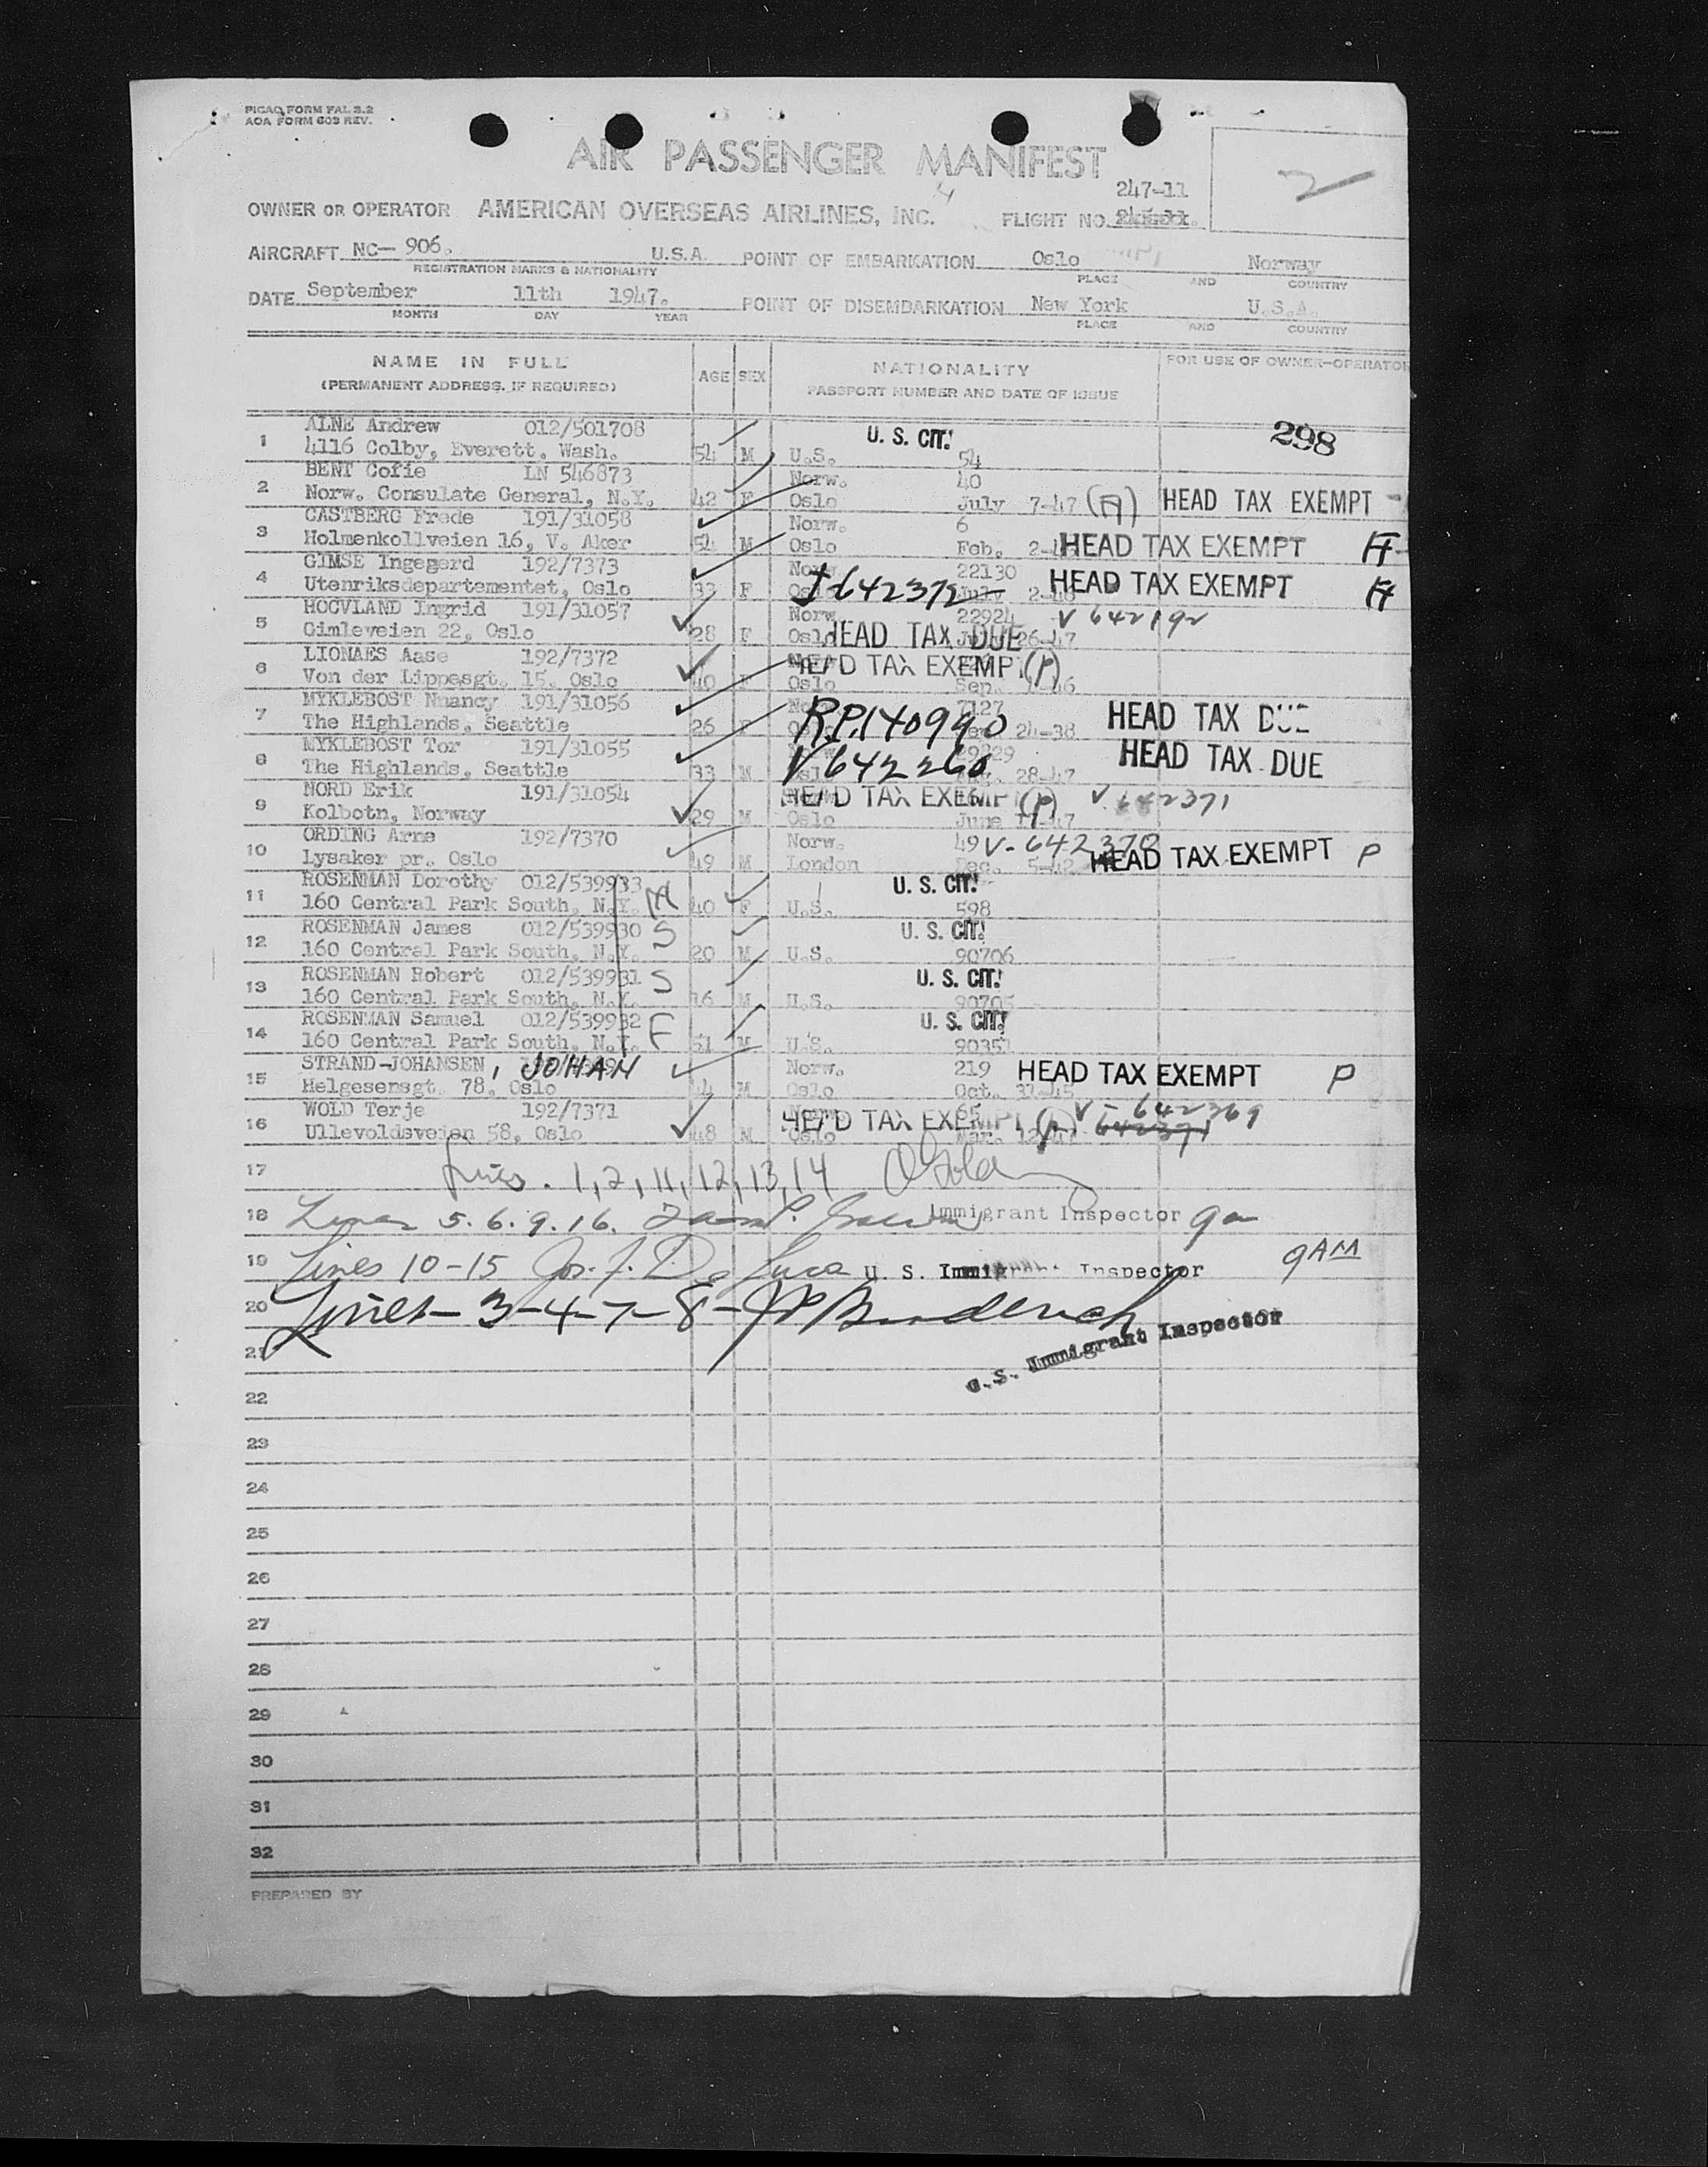 PICAO FORM FAL 2.2
AOA FORM 603 REV.
AIR PASSENGER MANIFEST
2
247-11
OWNER OR OPERATOR AMERICAN OVERSEAS AIRLINES, INC. FLIGHT NO.
AIRCRAFT NC— 906. U.S.A. POINT OF EMBARKATION Oslo Norway
REGISTRATION MARKS & NATIONALITY PLACE AND COUNTRY
DATE September 11th 1947. POINT OF DISEMBARKATION New York U.S.A.
MONTH DAY YEAR PLACE AND COUNTRY
NAME IN FULL AGE SEX NATIONALITY FOR USE OF OWNER-OPERATOR
(PERMANENT ADDRESS, IF REQUIRED) PASSPORT NUMBER AND DATE OF ISSUE
ALNE Andrew 012/501708 U. S. CIT. 298
1 4116 Colby, Everett, Wash. 54 M U.S. 54
BENT Cofie LN 546873 Norw. 40
2 Norw. Consulate General, N.Y. 42 F Oslo July 7-47 (A) HEAD TAX EXEMPT
CASTBERG Frede 191/31058 Norw. 6
3 Holmenkollveien 16, V. Aker 54 M Oslo Feb. HEAD TAX EXEMPT
GIMSE Ingegerd 192/7373 22130
4 Utenriksdepartementet, Oslo 33 F 642372 HEAD TAX EXEMPT
HOCVLAND Ingrid 191/31057 Norw. 22924 V 642192
5 Gimleveien 22, Oslo 28 F Oslo HEAD TAX DUE 26-47
LIONAES Aase 192/7372 HEAD TAX EXEMPT (P)
6 Von der Lippesgt. 15, Oslo 40 F Oslo Sep.
MYKLEBOST Nuancy 191/31056 7127
7 The Highlands, Seattle 26 F R.P.140990 24-38 HEAD TAX DUE
MYKLEBOST Tor 191/31055
8 The Highlands, Seattle 33 M V642260 28-47 HEAD TAX DUE
NORD Erik 191/31054 HEAD TAX EXEMPT (P) V 642371
9 Kolbotn, Norway 29 M Oslo June
ORDING Arne 192/7370 Norw. 49 V-642370
10 Lysaker pr. Oslo 49 M London Dec. 5-42 HEAD TAX EXEMPT P
ROSENMAN Dorothy 012/539933 U. S. CIT.
11 160 Central Park South, N.Y. M 40 F U.S. 598
ROSENMAN James 012/539930 S U. S. CIT.
12 160 Central Park South, N.Y. 20 M U.S. 90706
ROSENMAN Robert 012/539931 S U. S. CIT.
13 160 Central Park South, N.Y. 16 M U.S. 90705
ROSENMAN Samuel 012/539932 F U. S. CIT.
14 160 Central Park South, N.Y. 51 M U.S. 90351
STRAND-JOHANSEN, JOHAN Norw. 219 HEAD TAX EXEMPT P
15 Helgesensgt. 78, Oslo 44 M Oslo Oct. 31-45
WOLD Terje 192/7371 65 V-642369
16 Ullevoldsveien 58, Oslo 48 M HEAD TAX EXEMPT (P) Oslo Mar. 642371
17 Lines. 1, 2, 11, 12, 13, 14
18 Lines 5. 6. 9. 16. Immigrant Inspector 9am
19 Lines 10-15 Jos. J. De Luca U. S. Immigrant Inspector 9AM
20 Lines-3-4-7-8-
21 U.S. Immigrant Inspector
22
23
24
25
26
27
28
29
30
31
32
PREPARED BY